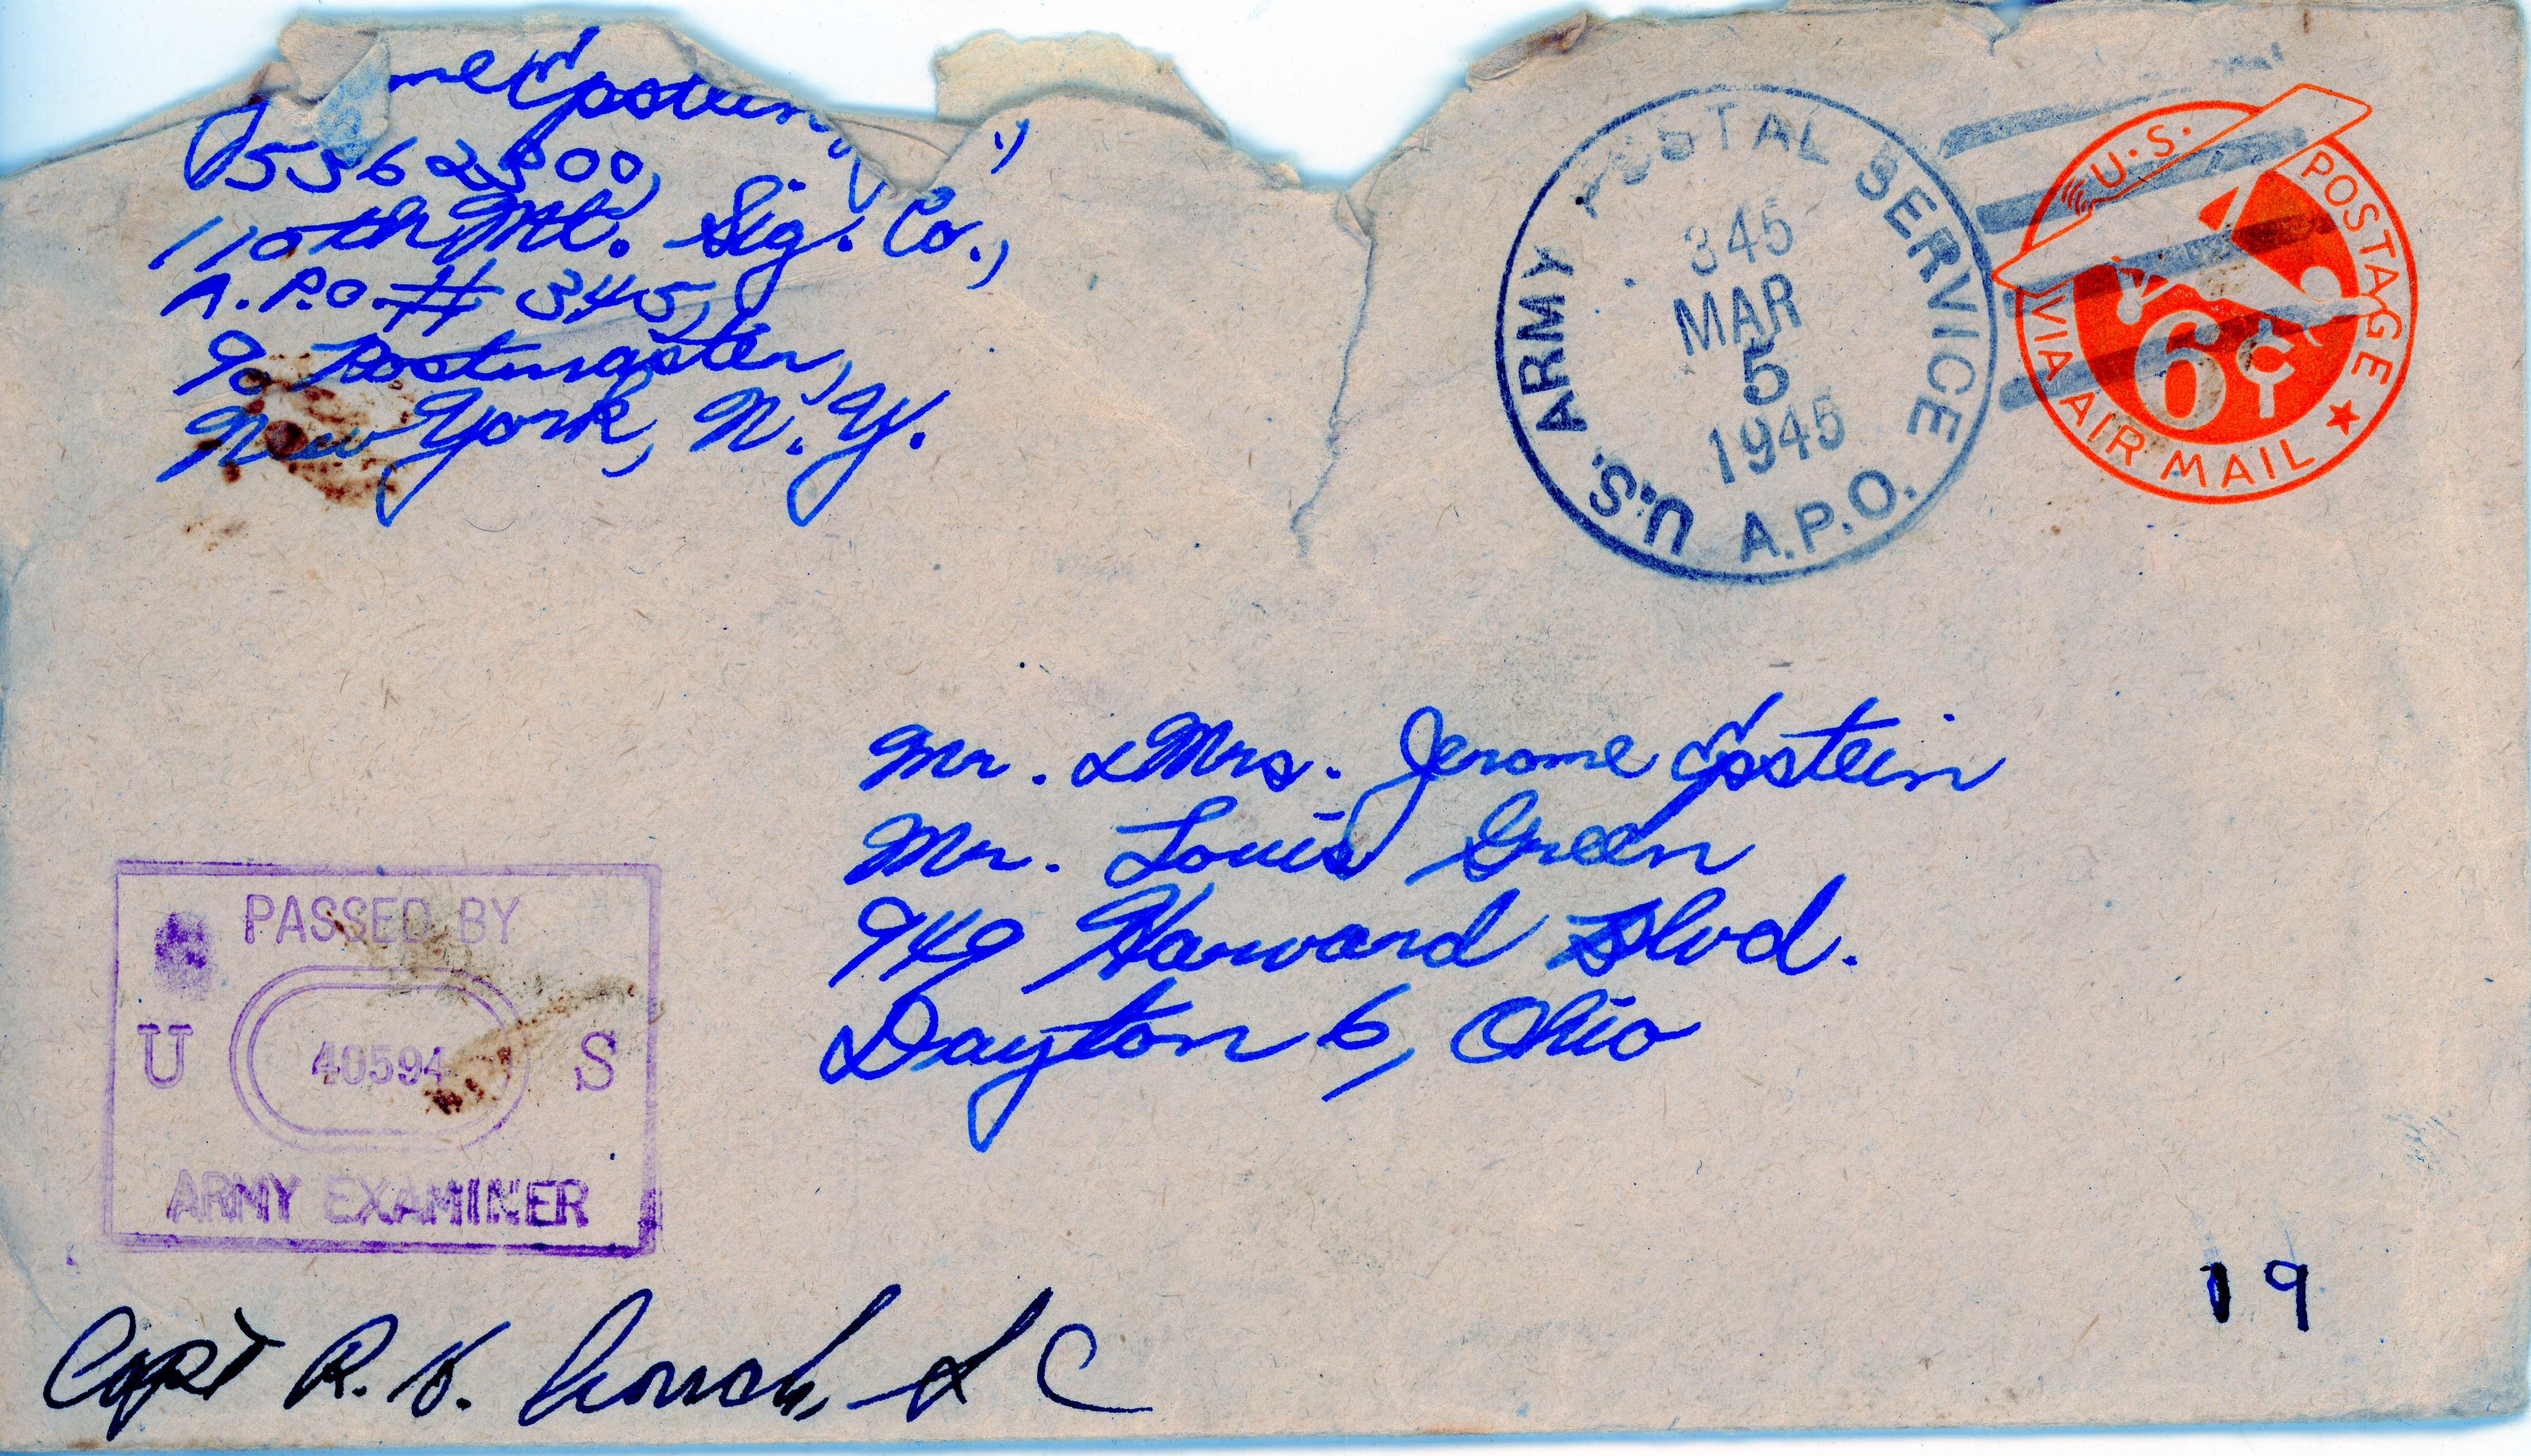 me Epstein,
5562500,
110th Mt. Sig. Co.,
A.P.O. # 345,
℅ Postmaster,
New York, N. Y.
U.S. ARMY POSTAL SERVICE
345
MAR
5
1945
A.P.O.
U.S. POSTAGE
6¢
VIA AIR MAIL
Mr. & Mrs. Jerome Epstein
Mr. Louis Green
949 Harvard Blvd.
Dayton 6, Ohio
PASSED BY
U 40594 S
ARMY EXAMINER
19
Capt R. S C